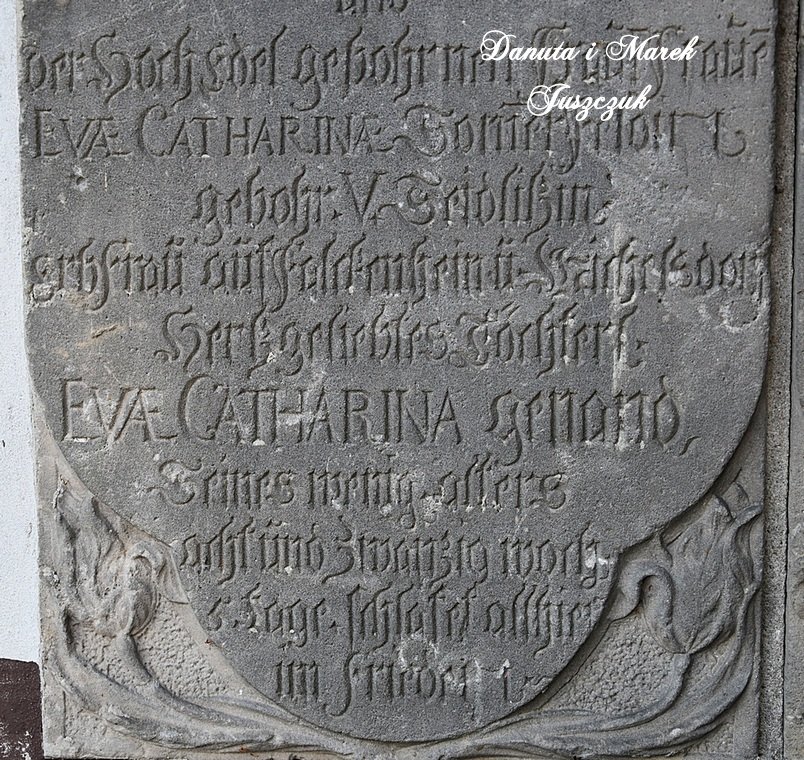 und
der: Hoch Edel gebohrnen Frau Fraüē
EVÆ CATHARINÆ
gebohr: V. Seidlitzin:
erbfraü aüf Falckenhein ü.
Hertz geliebtes Töchterl.
EVÆ CATHARINA genand,
Seines wenig alters
acht ünd zwanzig woch.
5. Tage. schlafet allhier
im Frieden
Danuta i Marek
Juszczuk